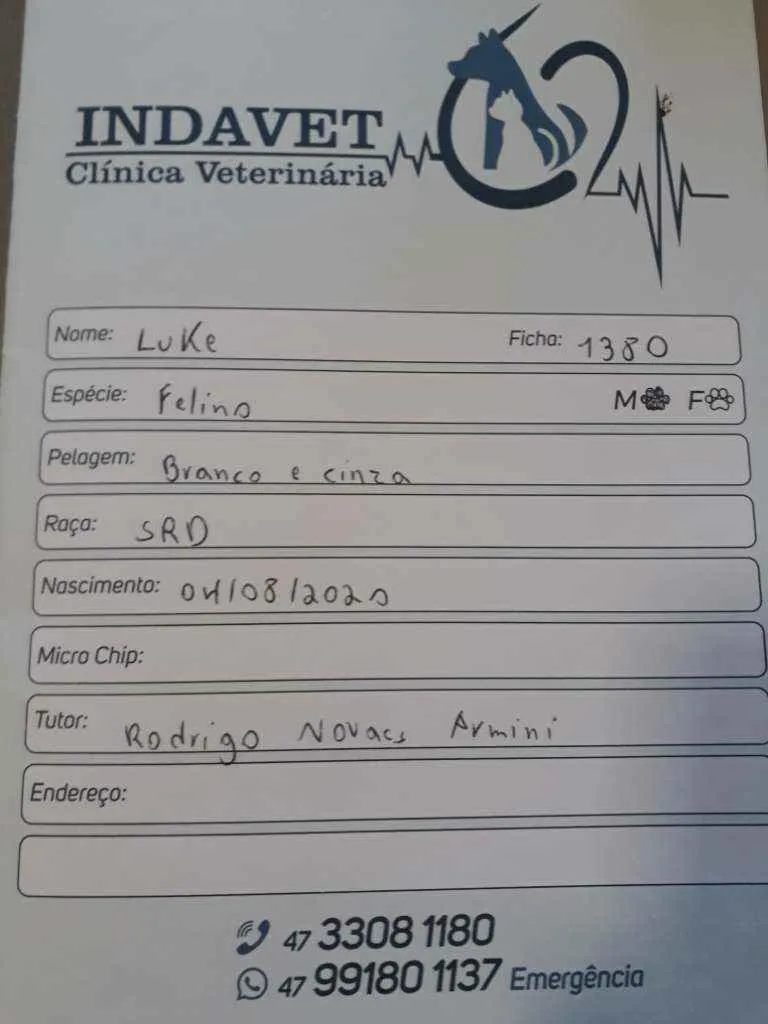 INDAVET
Clínica Veterinária
Nome: Luke Ficha: 1380
Espécie: Felino M F
Pelagem: Branco e cinza
Raça: SRD
Nascimento: 04/08/2020
Micro Chip:
Tutor: Rodrigo Novaes Armini
Endereço:
47 3308 1180
47 99180 1137 Emergência